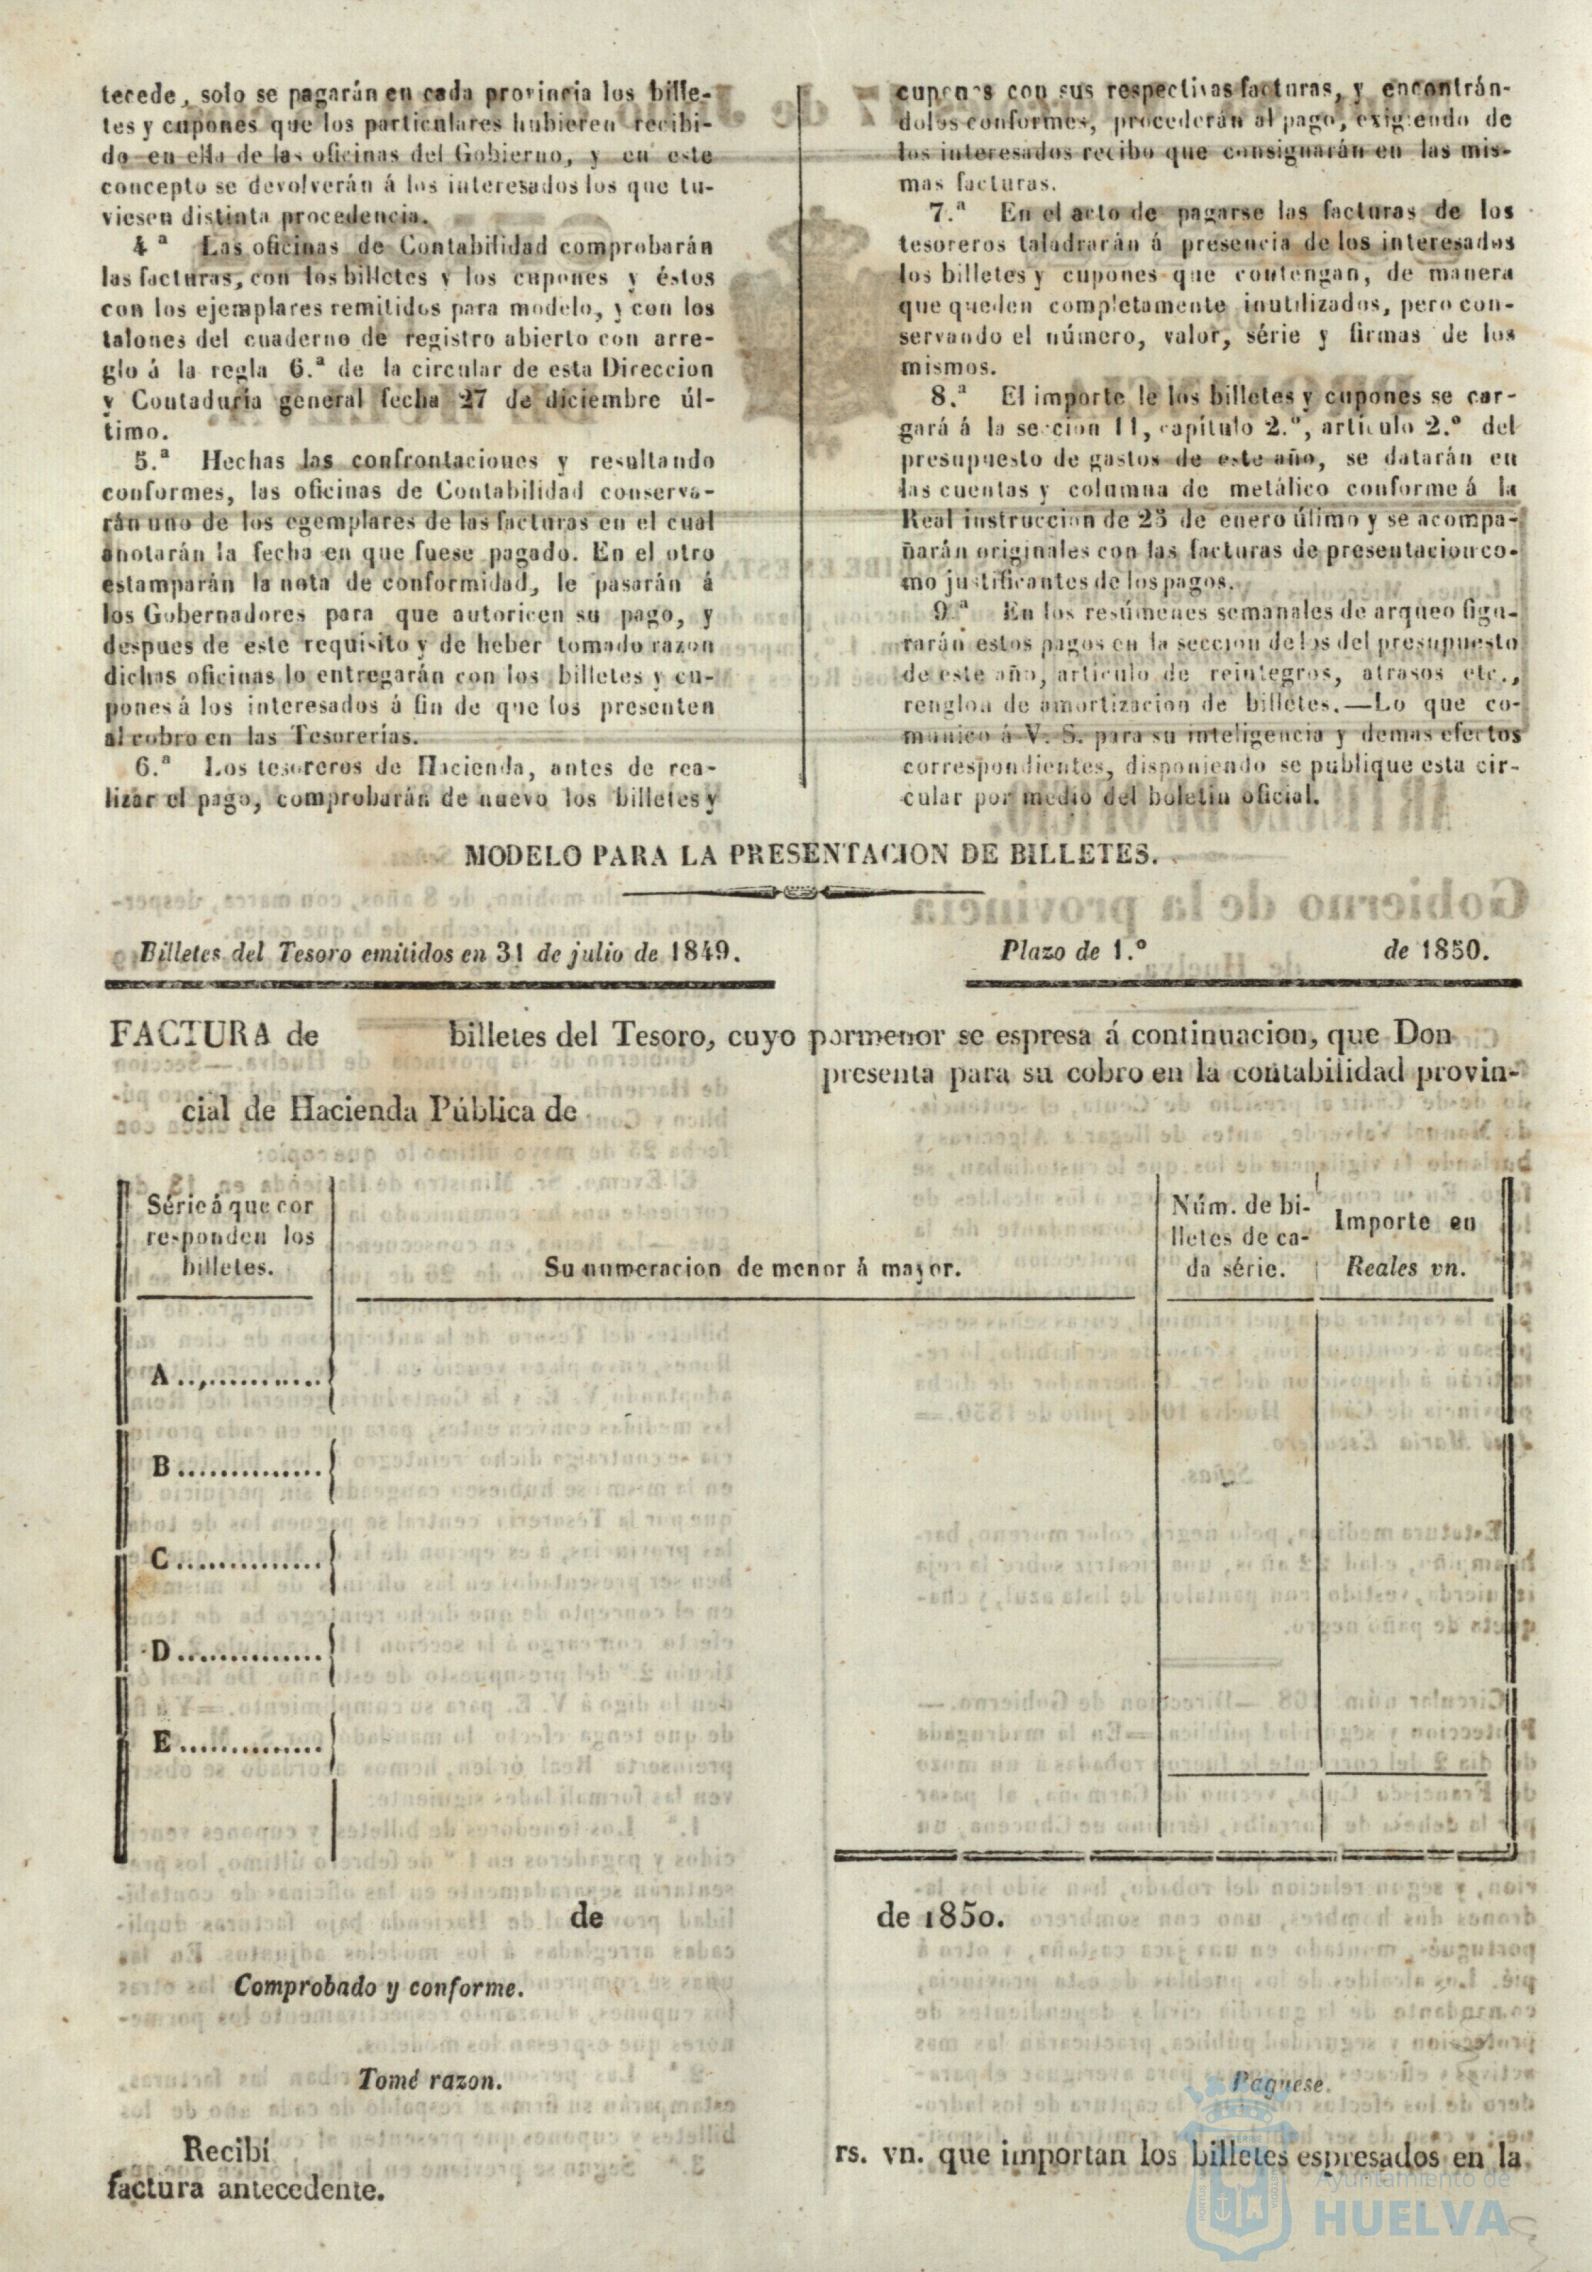 tecede, solo se pagarán en cada provincia los bille-
tes y cupones que los particulares hubieren recibi-
do en ella de las oficinas del Gobierno, y en este
concepto se devolverán á los interesados los que tu-
viesen distinta procedencia.
4.ª Las oficinas de Contabilidad comprobarán
las facturas, con los billetes y los cupones y éstos
con los ejemplares remitidos para modelo, y con los
talones del cuaderno de registro abierto con arre-
glo á la regla 6.ª de la circular de esta Direccion
y Contaduría general fecha 27 de diciembre úl-
timo.
5.ª Hechas las confrontaciones y resultando
conformes, las oficinas de Contabilidad conserva-
rán uno de los egemplares de las facturas en el cual
anotarán la fecha en que fuese pagado. En el otro
estamparán la nota de conformidad, le pasarán á
los Gobernadores para que autoricen su pago, y
despues de este requisito y de heber tomado razon
dichas oficinas lo entregarán con los billetes y cu-
pones á los interesados á fin de que los presenten
al cobro en las Tesorerías.
6.ª Los tesoreros de Hacienda, antes de rea-
lizar el pago, comprobarán de nuevo los billetes y
cupones con sus respectivas facturas, y encontrán-
dolos conformes, procederán al pago, exigiendo de
los interesados recibo que consignarán en las mis-
mas facturas.
7.ª En el acto de pagarse las facturas de los
tesoreros taladrarán á presencia de los interesados
los billetes y cupones que contengan, de manera
que queden completamente inutilizados, pero con-
servando el número, valor, série y firmas de los
mismos.
8.ª El importe le los billetes y cupones se car-
gará á la seccion 11, capítulo 2.º, artículo 2.º del
presupuesto de gastos de este año, se datarán en
las cuentas y columna de metálico conforme á la
Real instruccion de 25 de enero úlimo y se acompa-
ñarán originales con las facturas de presentacion co-
mo justificantes de los pagos.
9.ª En los resúmenes semanales de arqueo figu-
rarán estos pagos en la seccion de los del presupuesto
de este año, artículo de reintegros, atrasos etc.,
renglon de amortizacion de billetes.—Lo que co-
munico á V. S. para su inteligencia y demas efectos
correspondientes, disponiendo se publique esta cir-
cular por medio del boletin oficial.
MODELO PARA LA PRESENTACION DE BILLETES.
Billetes del Tesoro emitidos en 31 de julio de 1849. Plazo de 1.º de 1850.
FACTURA de billetes del Tesoro, cuyo pormenor se espresa á continuacion, que Don
presenta para su cobro en la contabilidad provin-
cial de Hacienda Pública de
Série á que cor
responden los
billetes.
Su numeracion de menor á mayor.
Núm. de bi-
lletes de ca-
da série.
Importe en
Reales vn.
A..,...........
B..............
C..............
D..............
E..............
de de 1850.
Comprobado y conforme.
Tomé razon. Paguese.
Recibí rs. vn. que importan los billetes espresados en la
factura antecedente.
Ayuntamiento de
HUELVA